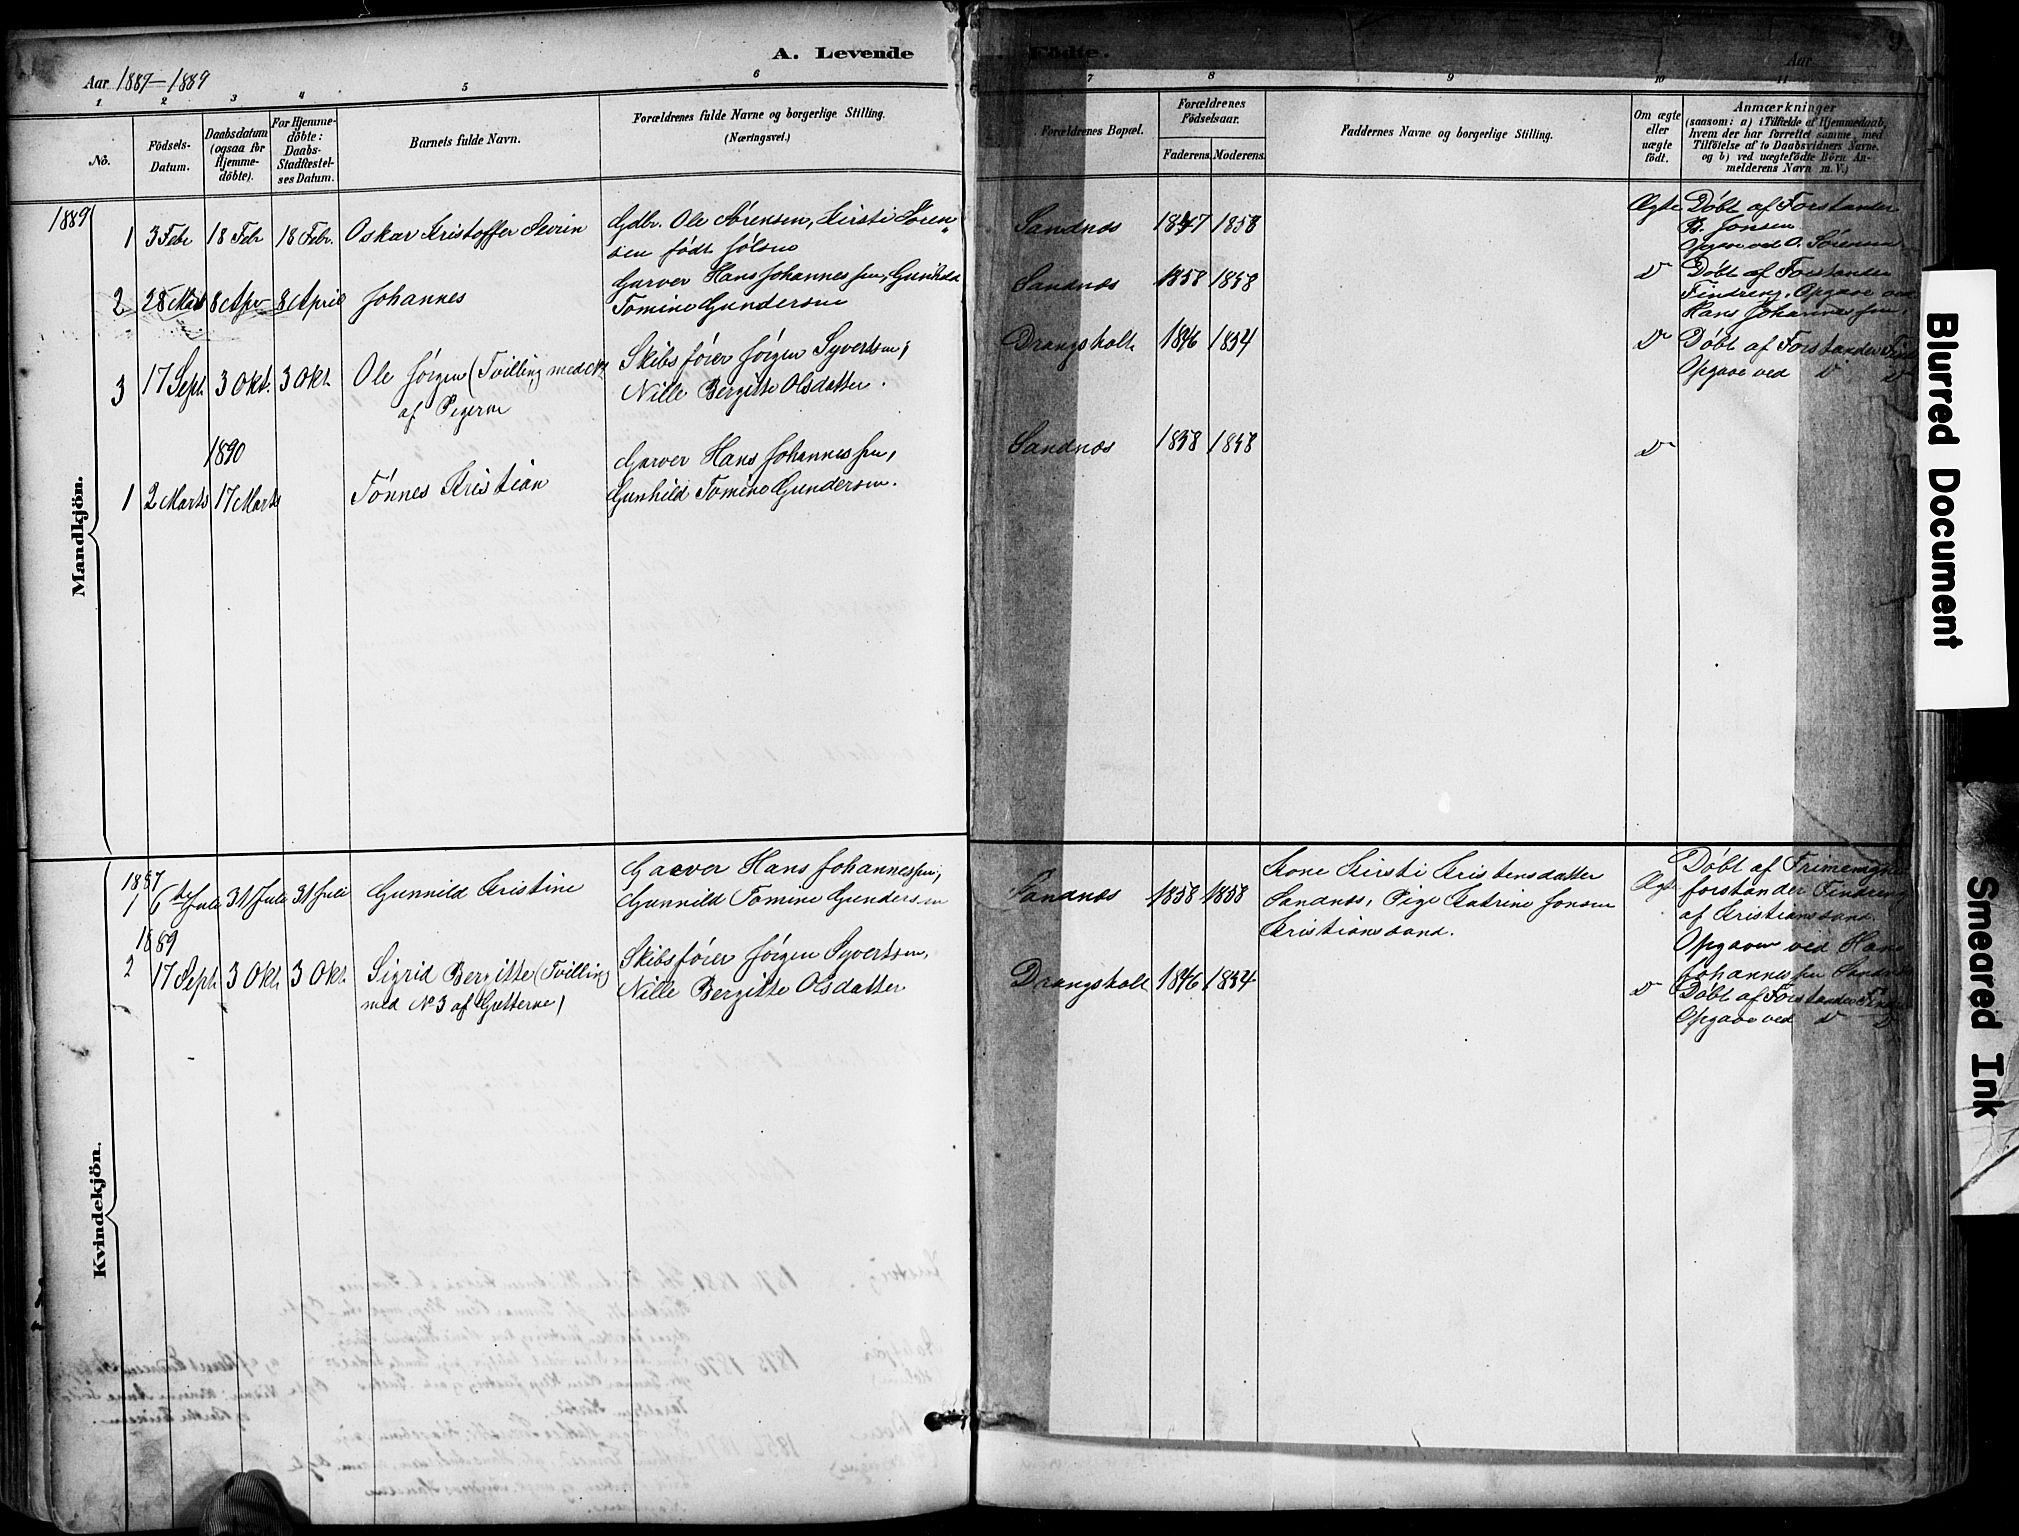 A. Levende Födte.
9
Aar 1887-1889
Aar
1 2 3 4 5 6 7 8 9 10 11
No.
Födsels-
Datum.
Daabsdatum
(ogsaa for
Hjemme-
döbte).
For Hjemme-
döbte:
Daabs-
Stadfæstel-
ses Datum.
Barnets fulde Navn.
Forældrenes fulde Navne og borgerlige Stilling.
(Næringsvei.)
Forældrenes Bopæl.
Forældrenes
Födselsaar.
Faderens. Moderens.
Faddernes Navne og borgerlige Stilling.
Om ægte
eller
uægte
födt.
Anmærkninger
(saasom: a) i Tilfælde af Hjemmedaab,
hvem der har forrettet samme, med
Tilföielse af to Daabsvidners Navne.
og b) ved uægtefödte Börn An-
melderens Navn m. V.)
Mandkjön.
1889
1 3 Febr 18 Febr 18 Febr. Oskar Kristoffer Sevrin
Gdbr. Ole Sørensen, Kirsti Søren-
sen født
Sandnæs 1847 1858
Ægte
Døbt af Forstander
B. Jonsen
Opgave ved O. Sørensen
2 28 Marts 8 Apr 8 April Johannes
Garver Hans Johannessen, Gunhild
Tomine Gundersen
Sandnæs 1858 1858
D
Døbt af Forstander
Findreng. Opgave ved
Hans Johannessen.
3 17 Sept 3 Okt. 3 Okt. Ole Jørgen (Tvilling med
af Pigerne
Skibsfører Jørgen Syvertsen,
Nille Bergitte Olsdatter.
Drangsholt 1846 1854
D
Døbt af Forstander
Opgave ved D D
1890
1 2 Marts 17 Marts Tønnes Kristian
Garver Hans Johannessen,
Gunhild Tomine Gundersen.
Sandnæs 1858 1858
D
Kvindekjön.
1887
1 6te Juli 31 Juli 31 Juli Gunnild Kristine
Garver Hans Johannessen,
Gunnild Tomine Gundersen
Sandnæs 1858 1858
Kone Kirsti Kristensdatter
Sandnæs, Pige Katrine Jonsen
Kristianssand.
Ægte
Døbt af Frimenigheds
forstander Findreng
af Kristianssand.
Opgaven ved Hans
Johannessen Sandnæs
1889
2 17 Sept 3 Okt 3 Okt. Sigrid Bergitte (Tvilling
med No 3 af Gutterne)
Skibsfører Jørgen Syvertsen,
Nille Bergitte Olsdatter
Drangsholt 1846 1854
D
Døbt af Forstander
Opgave ved D D
Blurred Document
Smeared Ink